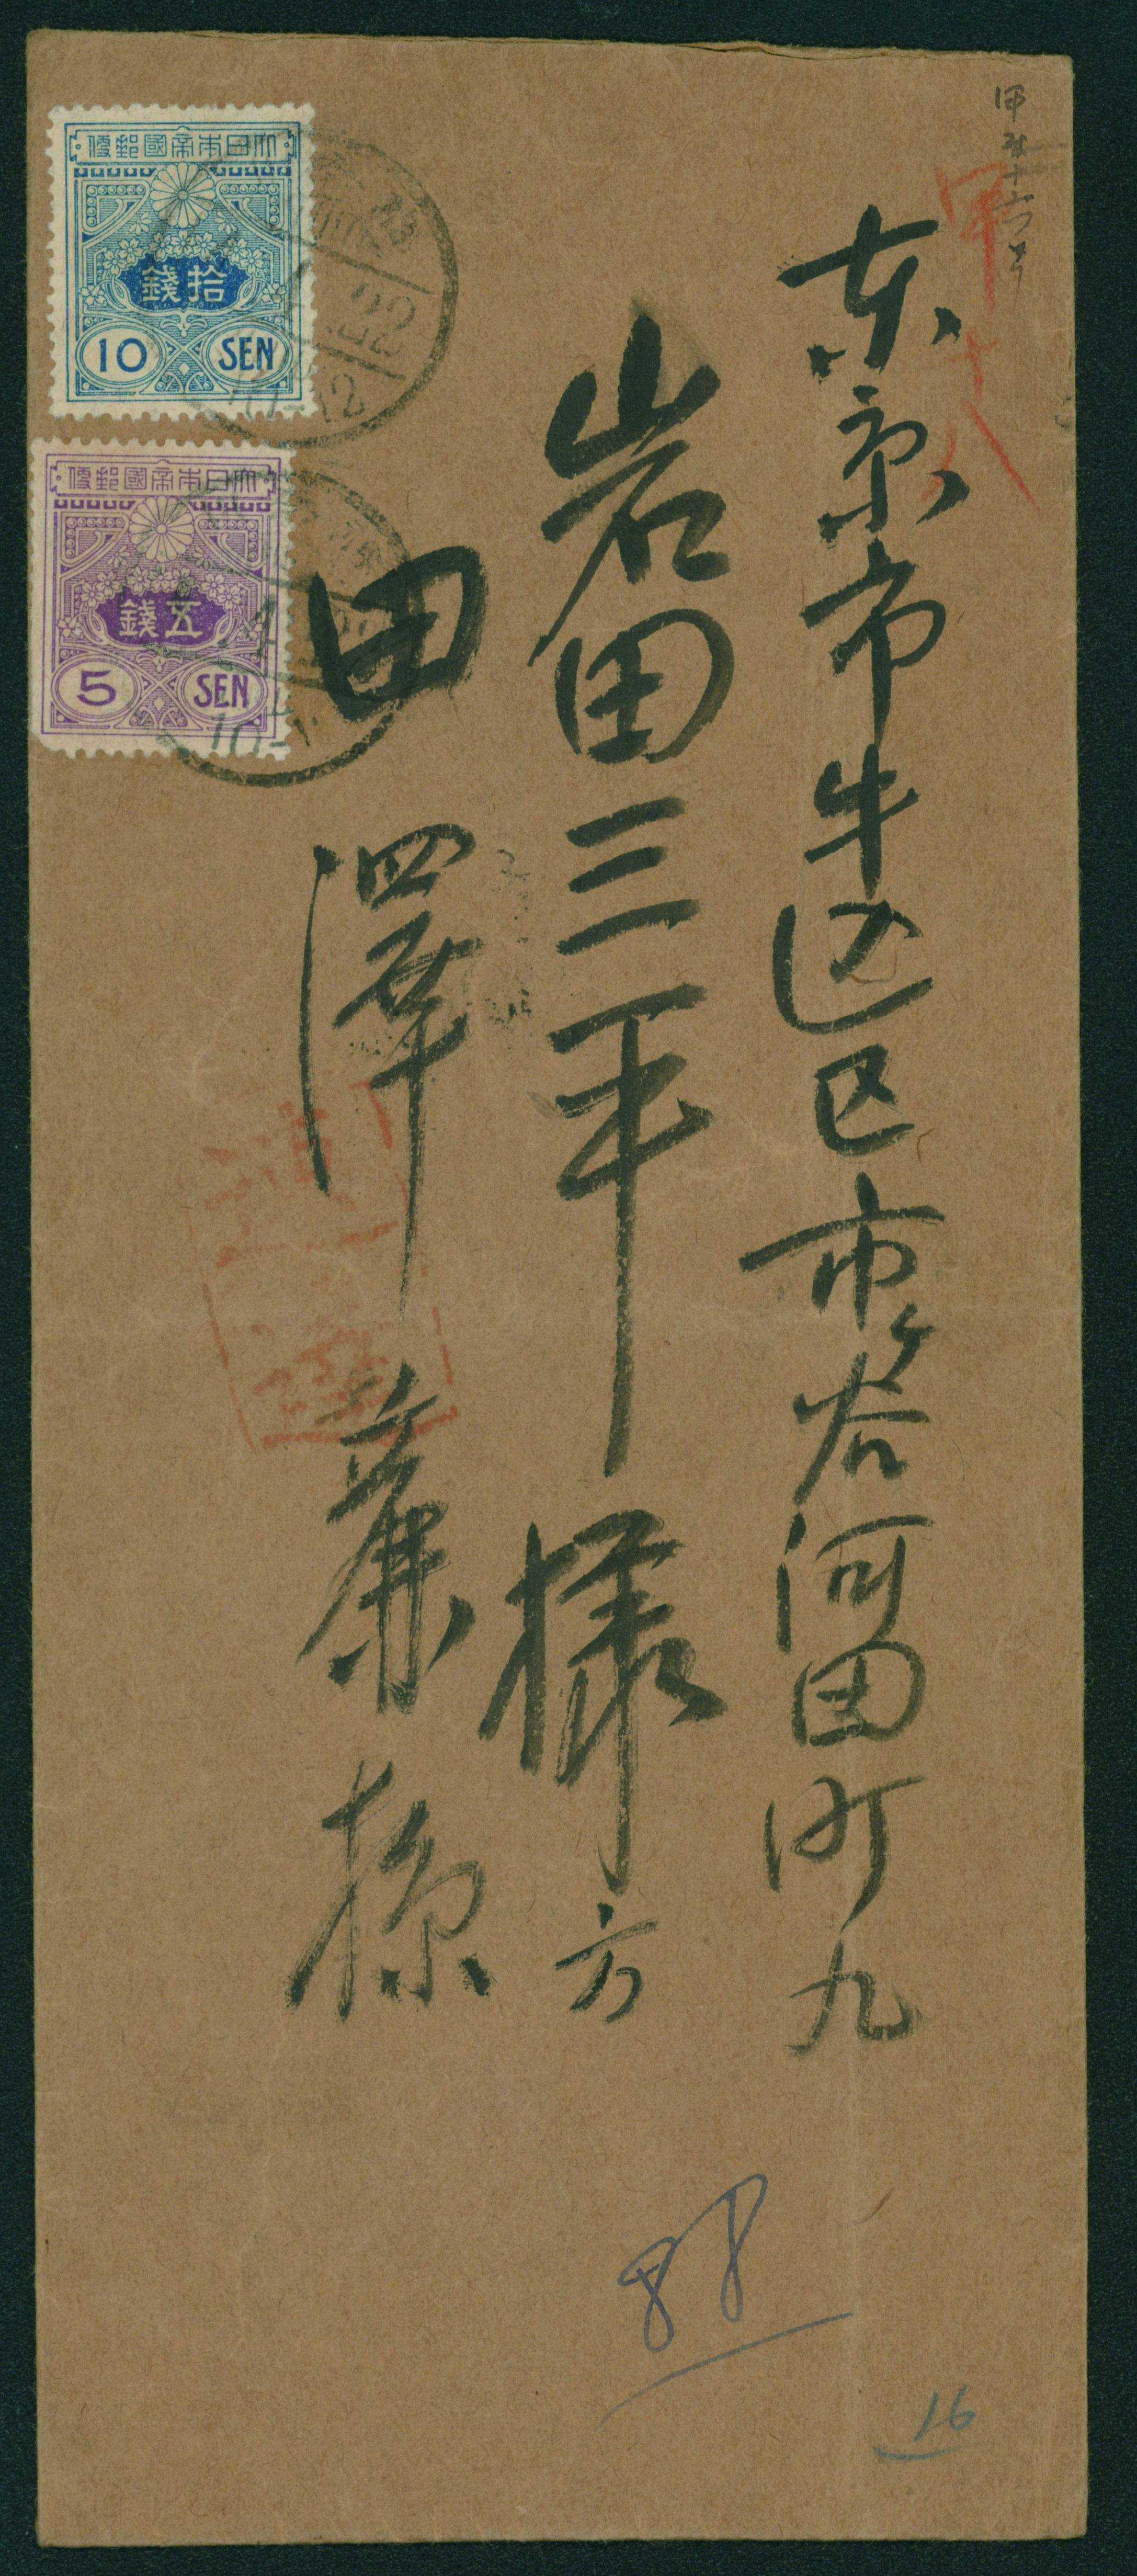 東京市牛込区市ヶ谷河田町九
岩田三平様方
田澤
大日本帝國郵便
拾錢
10 SEN
大日本帝國郵便
五錢
5 SEN
22
10-12
甲十八
88
16